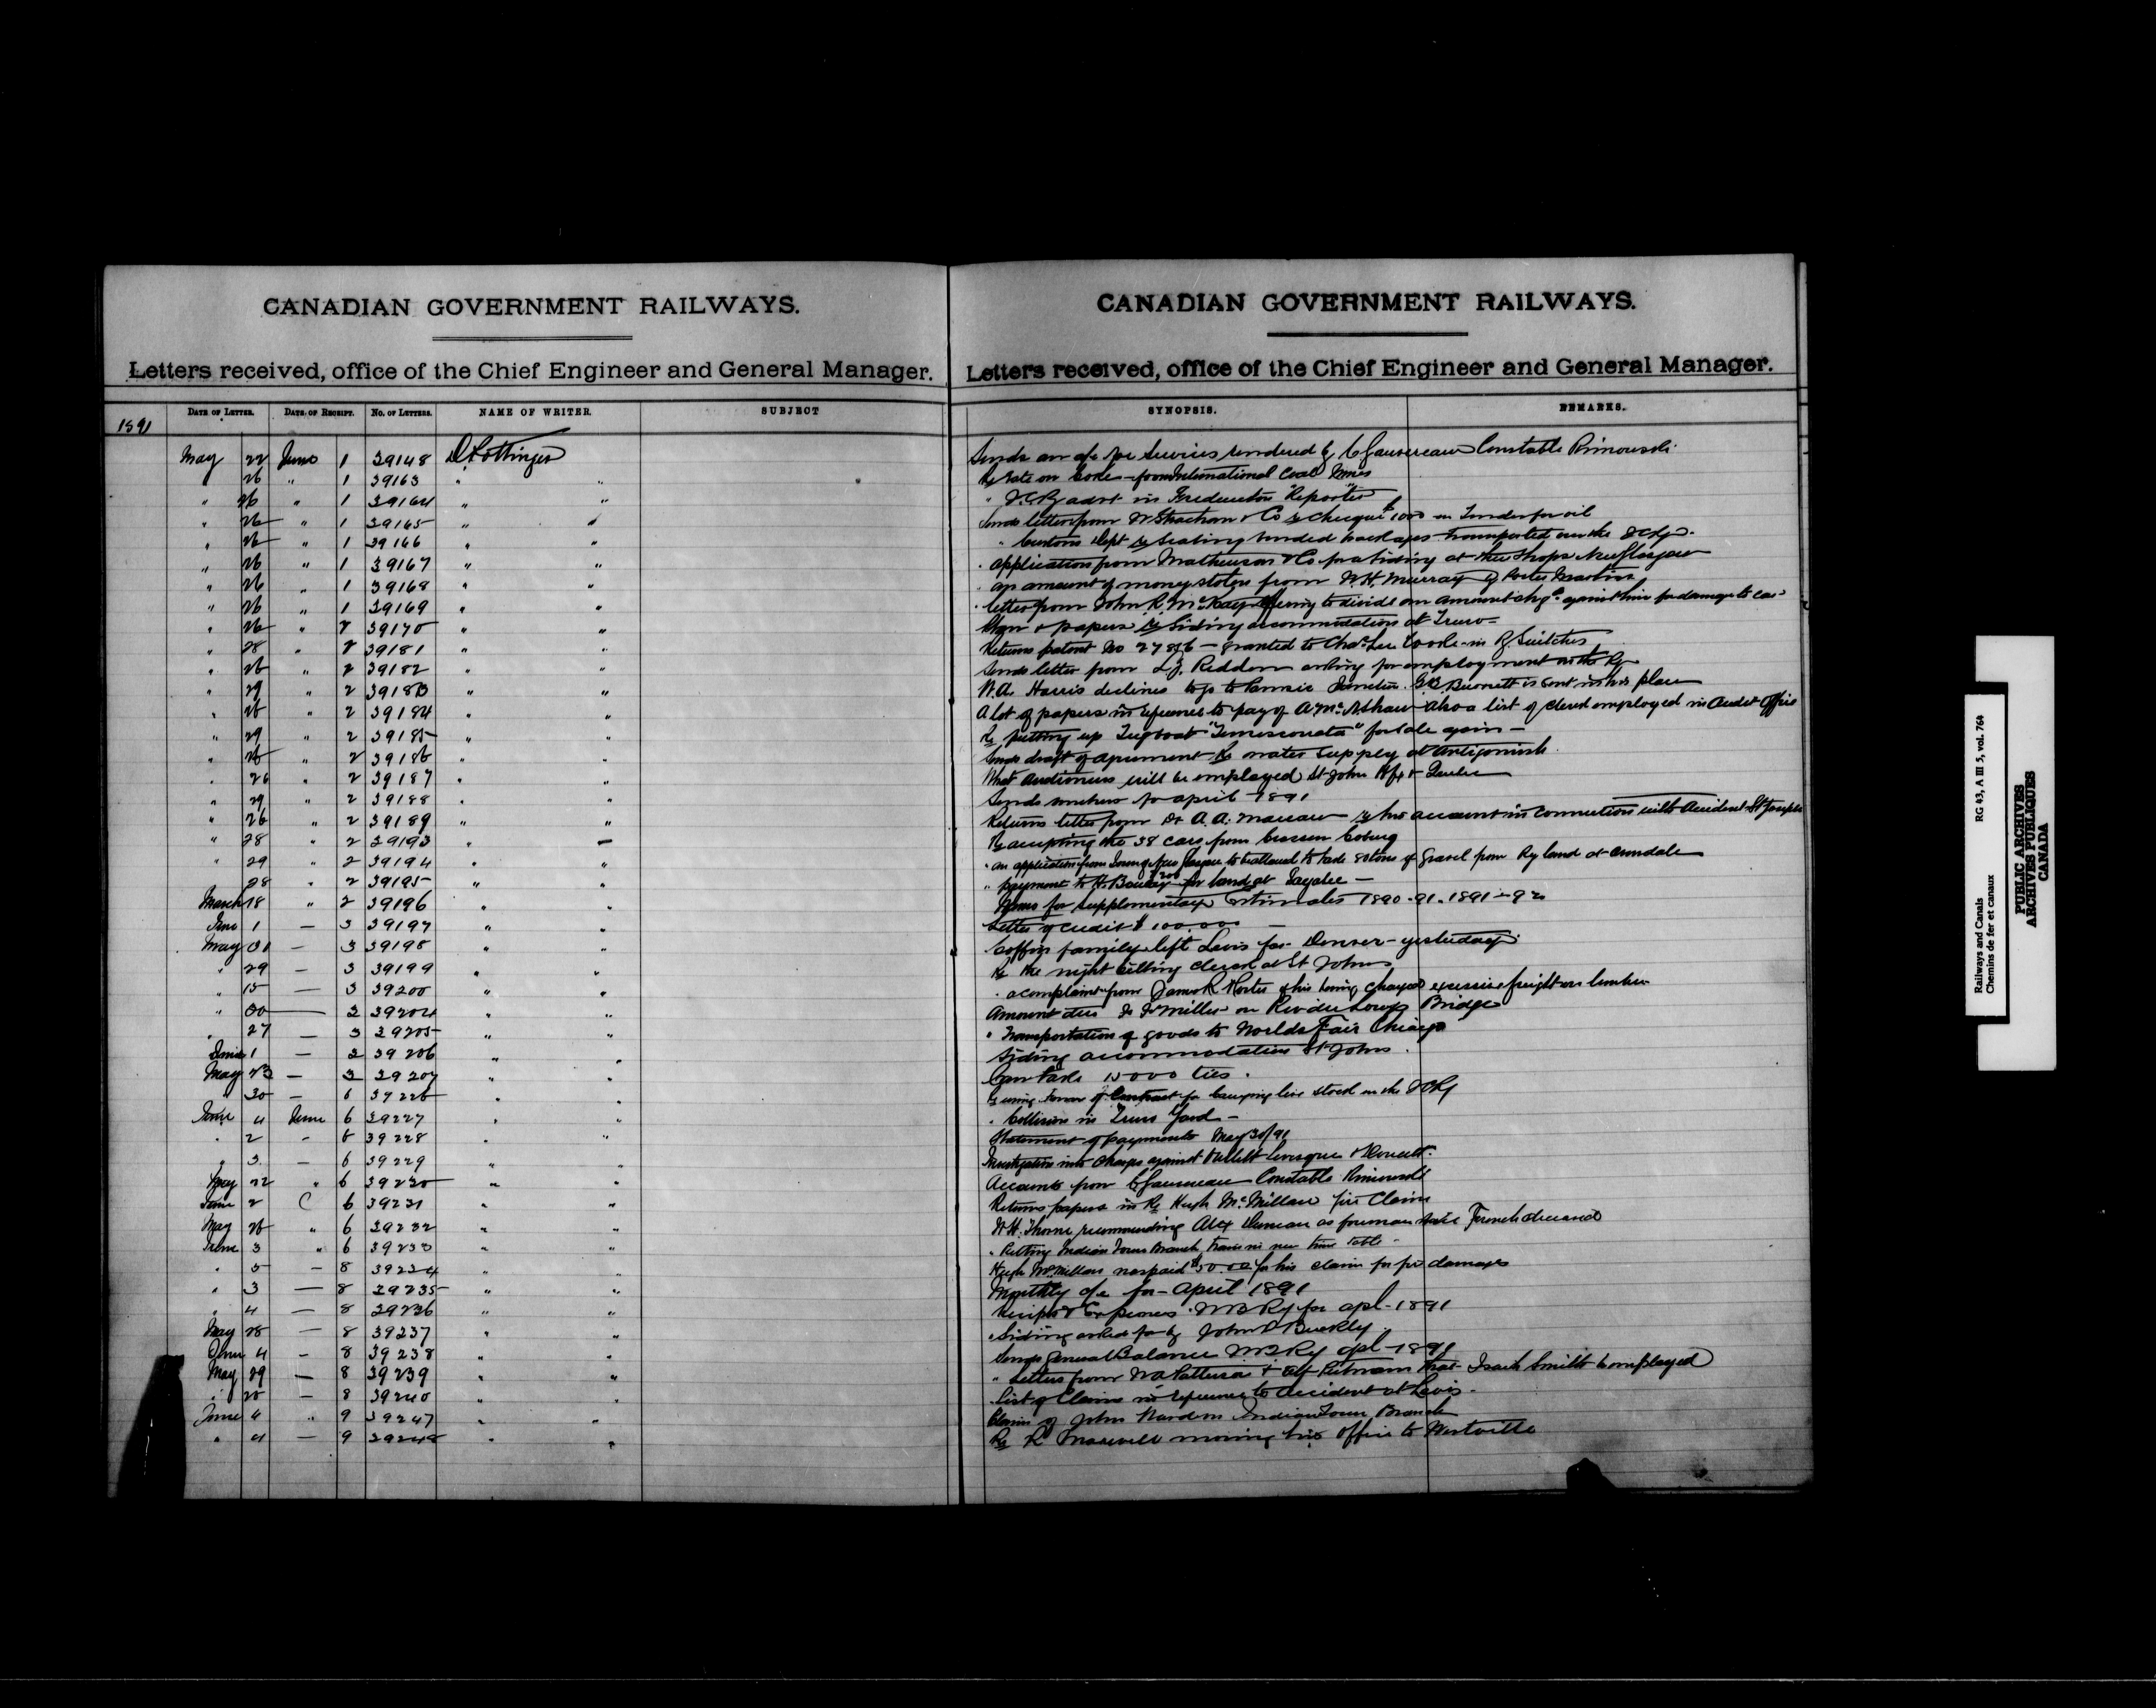 CANADIAN GOVERNMENT RAILWAYS.
Letters received, office of the Chief Engineer and General Manager.
DATE OF LETTER. DATE OF RECEIPT. No. OF LETTERS. NAME OF WRITER. SUBJECT
1891
May 22 June 1 39148 D. Pottinger
" 26 " 1 39163 " "
" 26 " 1 39164 " "
" 26 " 1 39165 " "
" 26 " 1 39166 " "
" 26 " 1 39167 " "
" 26 " 1 39168 " "
" 26 " 1 39169 " "
" 26 " 2 39170 " "
" 28 " 2 39181 " "
" 26 " 2 39182 " "
" 29 " 2 39183 " "
" 26 " 2 39184 " "
" 29 " 2 39185 " "
" 26 " 2 39186 " "
" 26 " 2 39187 " "
" 29 " 2 39188 " "
" 26 " 2 39189 " "
" 28 " 2 39193 " "
" 29 " 2 39194 " "
28 " 2 39195 " "
March 18 " 2 39196 " "
June 1 — 3 39197 " "
May 31 — 3 39198 " "
" 29 — 3 39199 " "
" 15 — 3 39200 " "
" 30 — 3 39204 " "
" 27 — 3 39205 " "
June 1 — 3 39206 " "
May 23 — 3 39207 " "
" 30 — 6 39226 " "
June 4 June 6 39227 " "
" 2 - 6 39228 " "
" 3 — 6 39229 " "
May 22 " 6 39230 " "
June 2 6 39231 " "
May 26 " 6 39232 " "
June 3 " 6 39233 " "
" 5 — 8 39234 " "
" 3 — 8 39235 " "
" 4 — 8 39236 " "
May 28 — 8 39237 " "
June 4 — 8 39238 " "
May 29 — 8 39239 " "
" 28 — 8 39240 " "
June 4 " 9 39247 " "
" 4 — 9 39248 " "
CANADIAN GOVERNMENT RAILWAYS.
Letters received, office of the Chief Engineer and General Manager.
SYNOPSIS. REMARKS.
Sends an a/c for Services rendered by C Gauvereau Constable Rimouski
Re rate on Coke from International Coal Mines
" I.C.Ry advt in Fredericton "Reporter"
Sends letter from W Strachan & Co re cheque $1000 on Tender for oil
" Customs Dept re Sealing bonded packages transported over the ICRy.
" application from Matheson & Co for a siding at their Shops New Glasgow
" an amount of money stolen from W.H. Murray
" letter from John R. McKay offering to divide an amount chgd against him for damage to car
Plan & papers re Siding accommodation at Truro
Returns patent No 27856 — granted to Chas Lee Cooke in Ry Switches
Sends letter from Redden asking for employment on the Ry
W.A. Harris declines to go to Junction. Burnett is sent in his place
A lot of papers in reference to pay of A McNShaw also a list of clerks employed in Audit Office
Re putting up Tugboat "Temiscouata" for sale again —
Sends draft of agreement Re water supply at Antigonish
What auctioneers will be employed St John Hfx & Quebec
Sends vouchers for April 1891
Returns letter from Dr A.A. re his account in connection with Accident St Joseph
Re accepting the 38 cars from Crossen Cobourg
" an application from to be allowed to take 80 tons of Gravel from Ry land at Avondale
" payment to H. $200 for land at —
Items for supplementary Estimates 1890-91. 1891-92
Letter of Credit $100,000 —
Coffins family left Levis for Denver — yesterday
Re the night billing clerk at St Johns
" a complaint from James R of his being charged excessive freight on lumber
Amount due Miller on Riv du Loup Bridge
" Transportation of goods to Worlds Fair Chicago
Siding accommodation St Johns.
Can take 15000 ties.
Re using Form of Contract for carrying live stock on the ICRy
" Collision in Truro Yard —
Statement of payments May 30/91
Investigation into charges against Levesque & Doucett.
Accounts from C Gauvereau Constable Rimouski
Returns papers in Re Hugh McMillan fire Claim
W.H. Thorne recommending Alex Duncan as foreman
" Putting Indian Town Branch train in new time table
Hugh McMillan was paid $50.00 for his claim for fire damages
Monthly a/c for April 1891
Receipts & Expenses. WBRy for apl. 1891
" Siding asked for by John Buckley.
Sends General Balance WBRy apl 1891
" Letters from Patterson & Alf Putnam that Isach Smith be employed
List of Claims in reference to accident at Levis.
Claim of John Wardon Indian Town Branch
Re R Maxwell moving his office to Westville
Railways and Canals RG 43, A III 5, vol. 764
Chemins de fer et canaux
PUBLIC ARCHIVES
ARCHIVES PUBLIQUES
CANADA